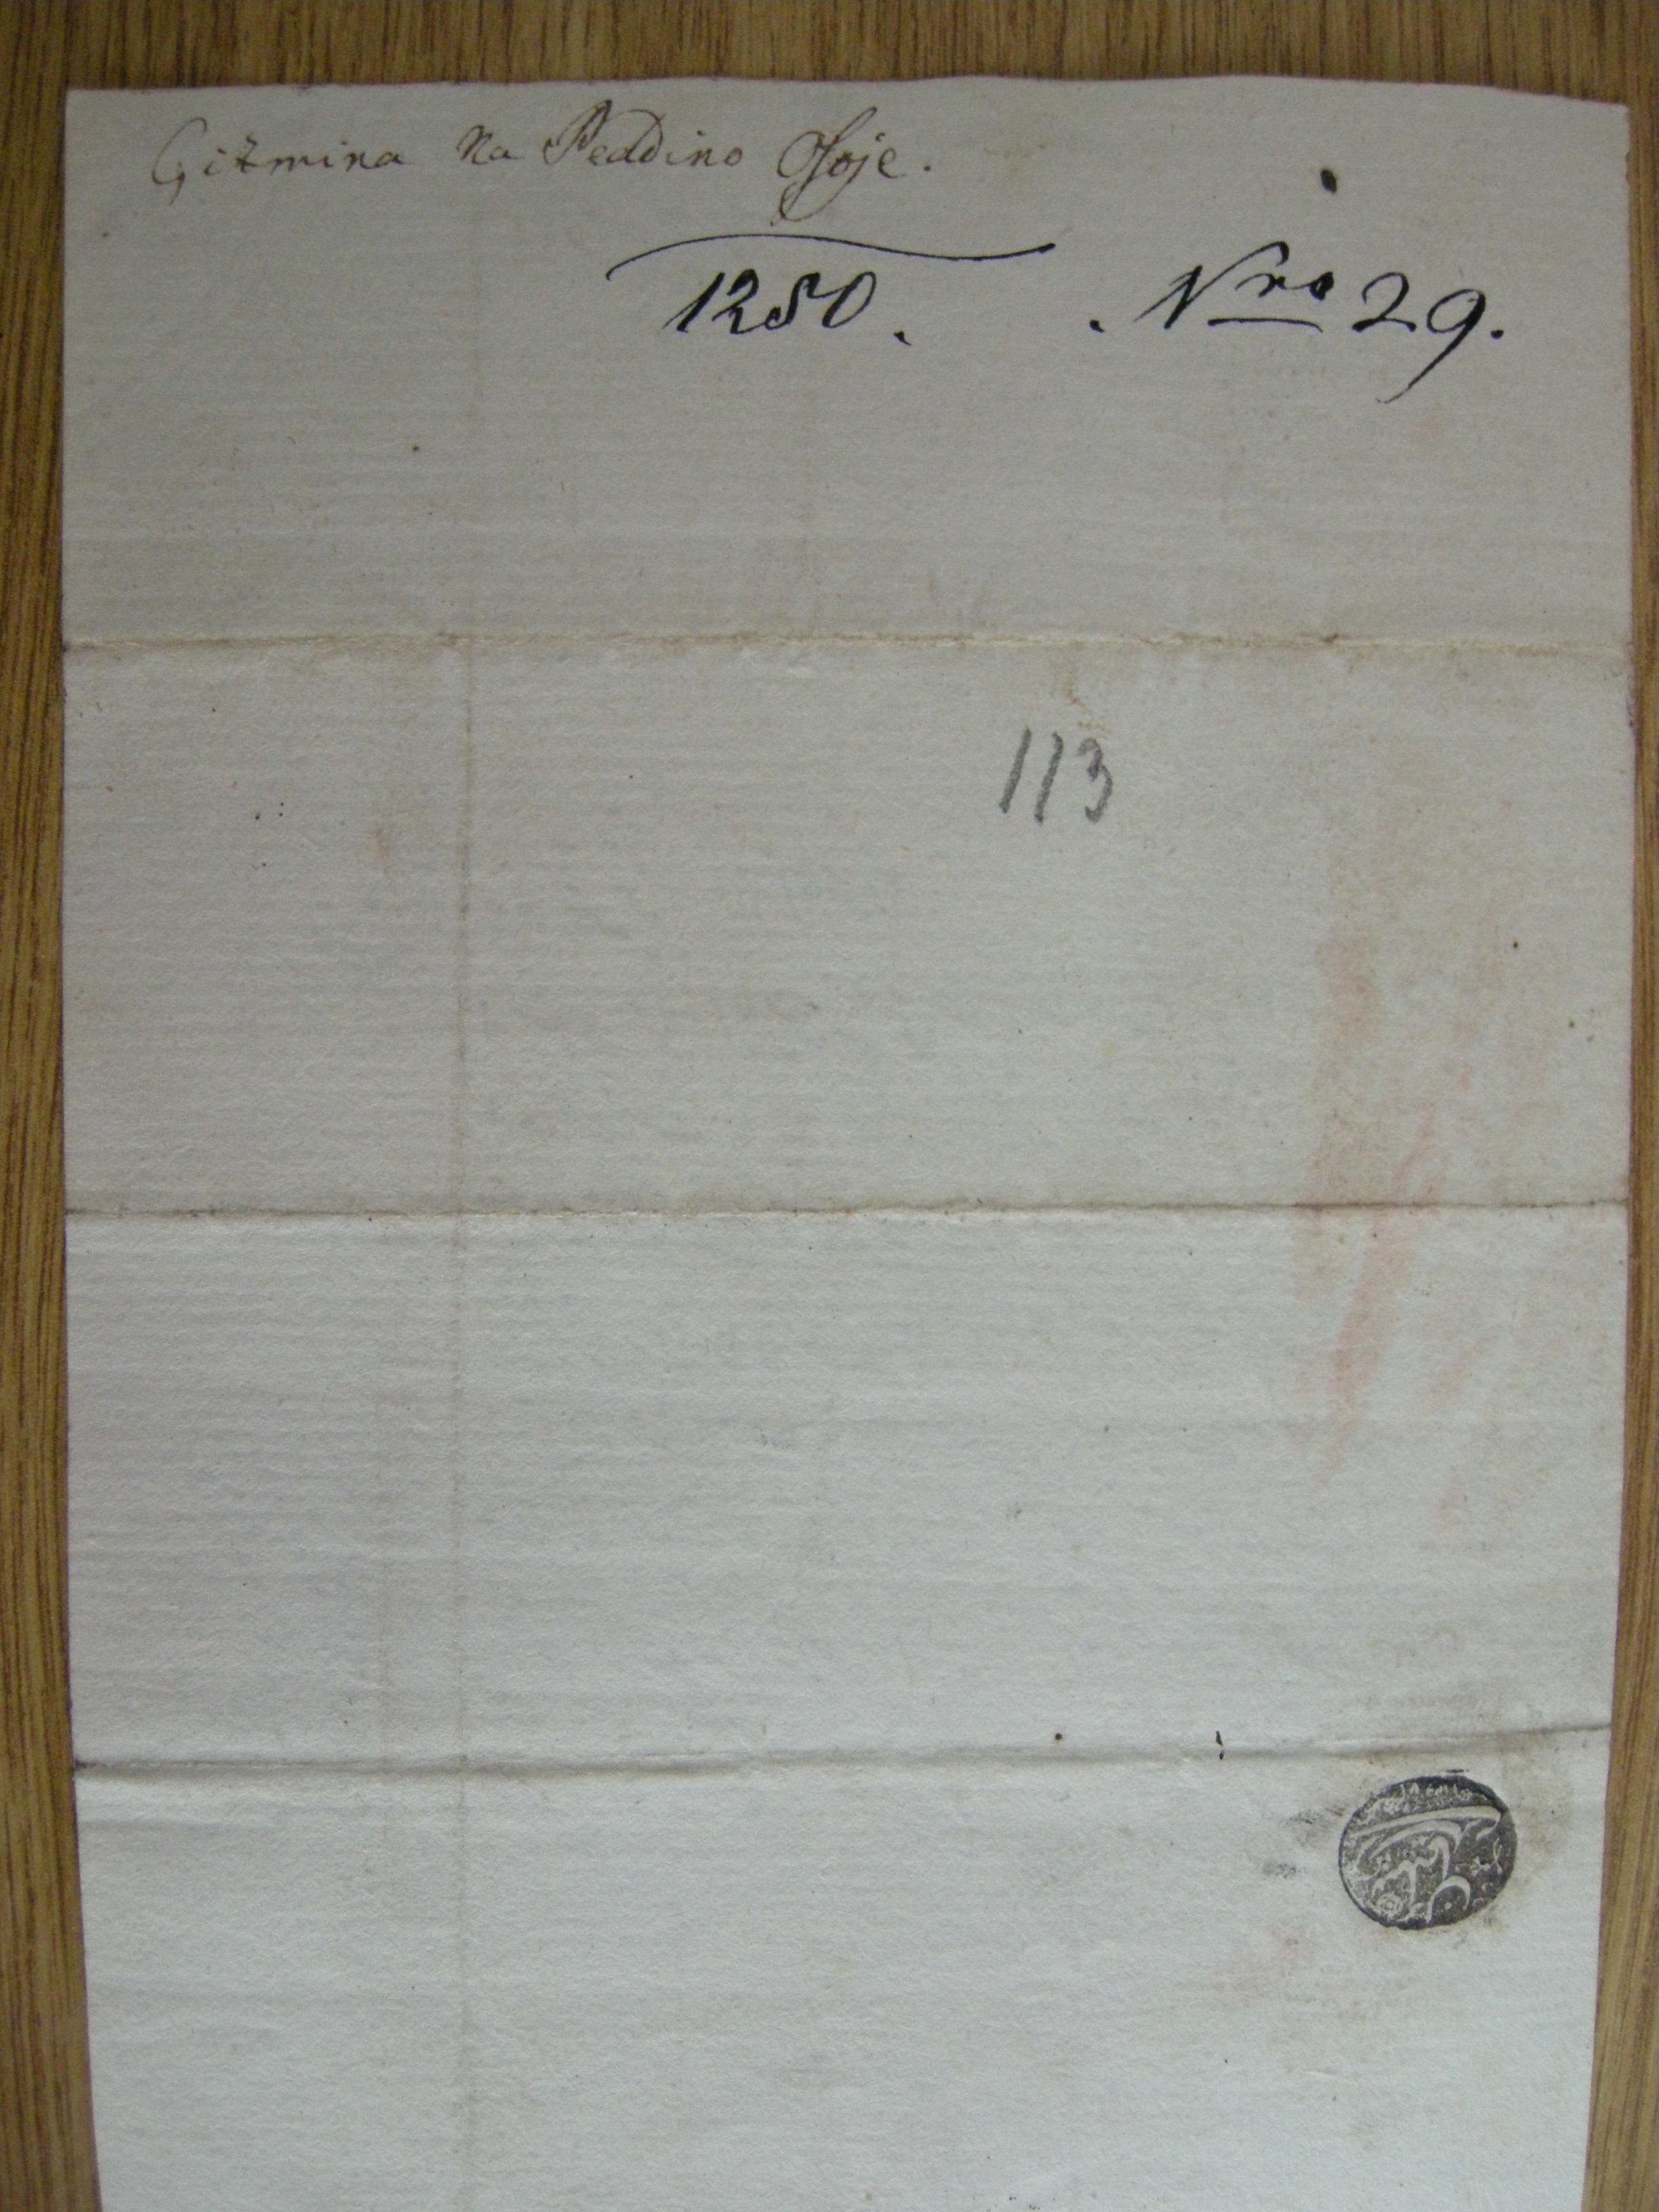 Gizmina na Peddino Osoje.
1280. . Nro 29.
113